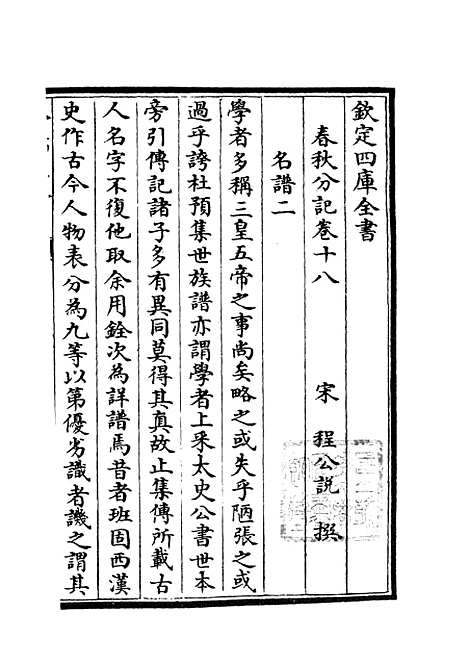 欽定四庫全書
春秋分記卷十八
宋 程公說 撰
名譜二
學者多稱三皇五帝之事尚矣略之或失乎陋張之或
過乎誇杜預集世族譜亦謂學者上采太史公書世本
旁引傳記諸子多有異同莫得其真故止集傳所載古
人名字不復他取余用銓次為詳譜焉昔者班固西漢
史作古今人物表分為九等以第優劣識者譏之謂其